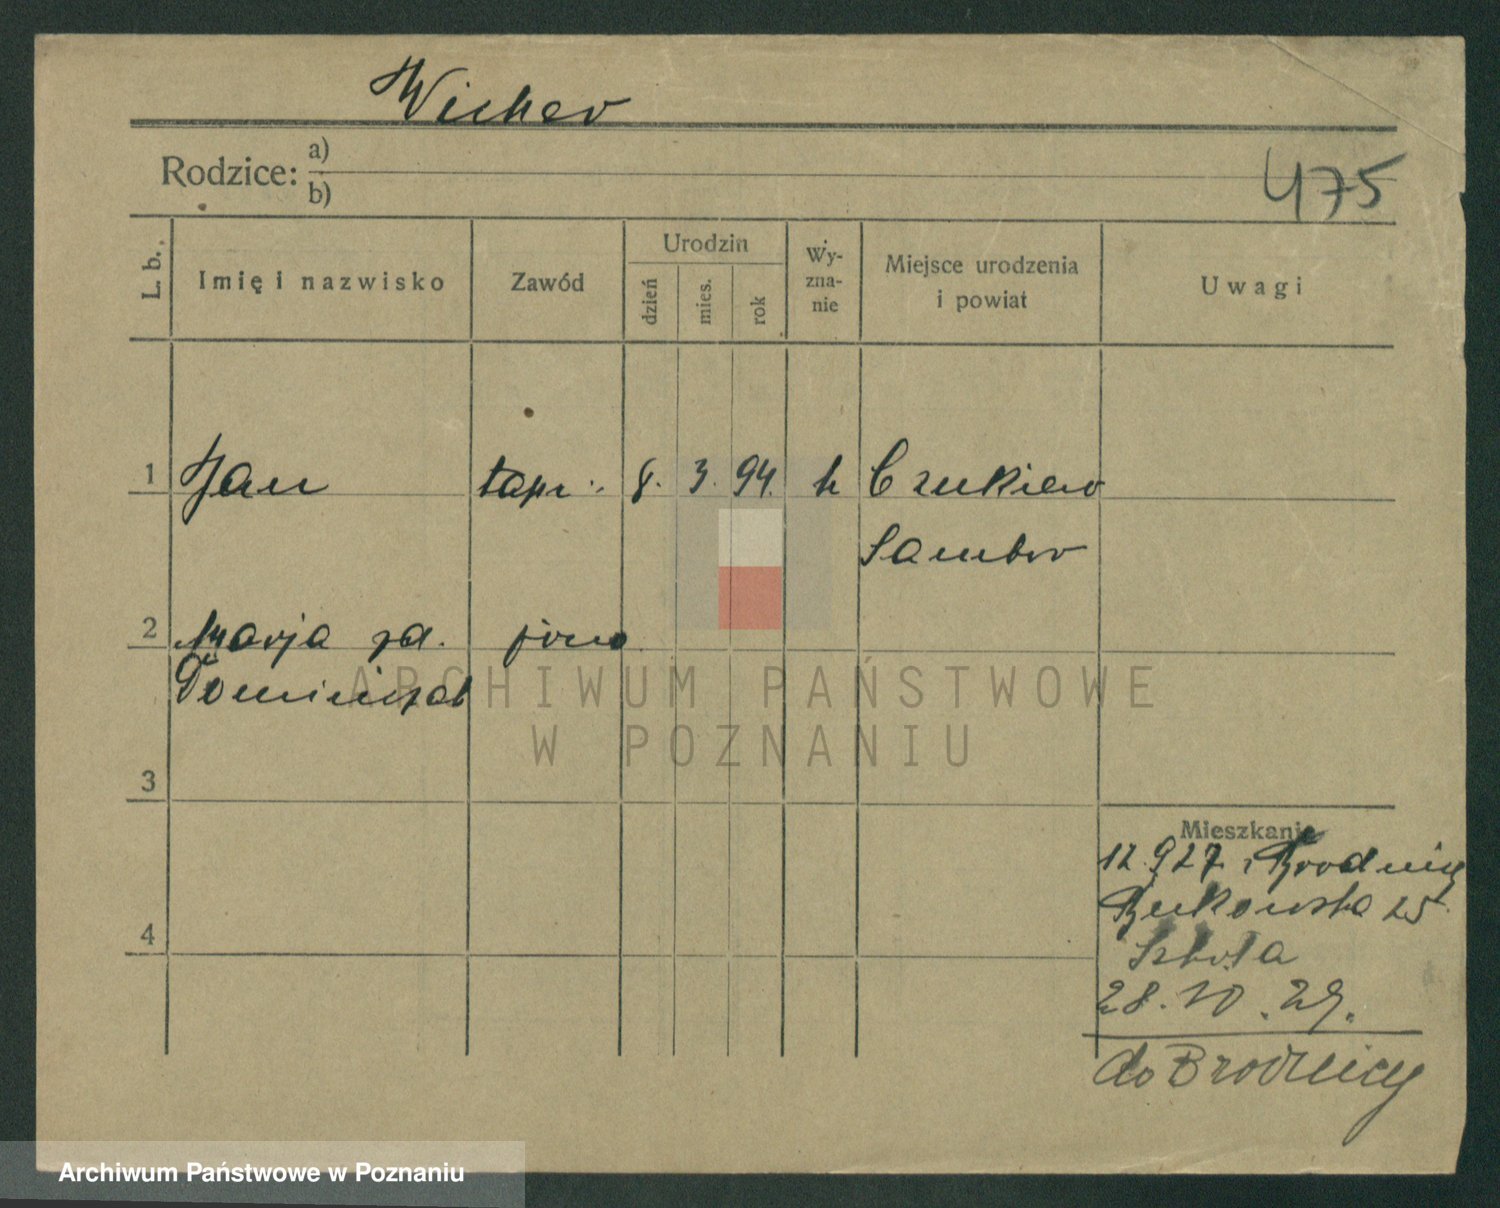 Wicher
Rodzice: a)
b)
475
L. b. Imię i nazwisko Zawód Urodzin dzień mies. rok Wy-zna-nie Miejsce urodzenia i powiat Uwagi
1 Jan kapr. 8. 3. 94. k Czukiew
Sambor
2 Marja zd.
Dominiczak
3
4
Mieszkanie
12.927 z Brodnicy
Bukowska 25
Szkoła
28.10.29.
do Brodnicy
ARCHIWUM PAŃSTWOWE
W POZNANIU
Archiwum Państwowe w Poznaniu